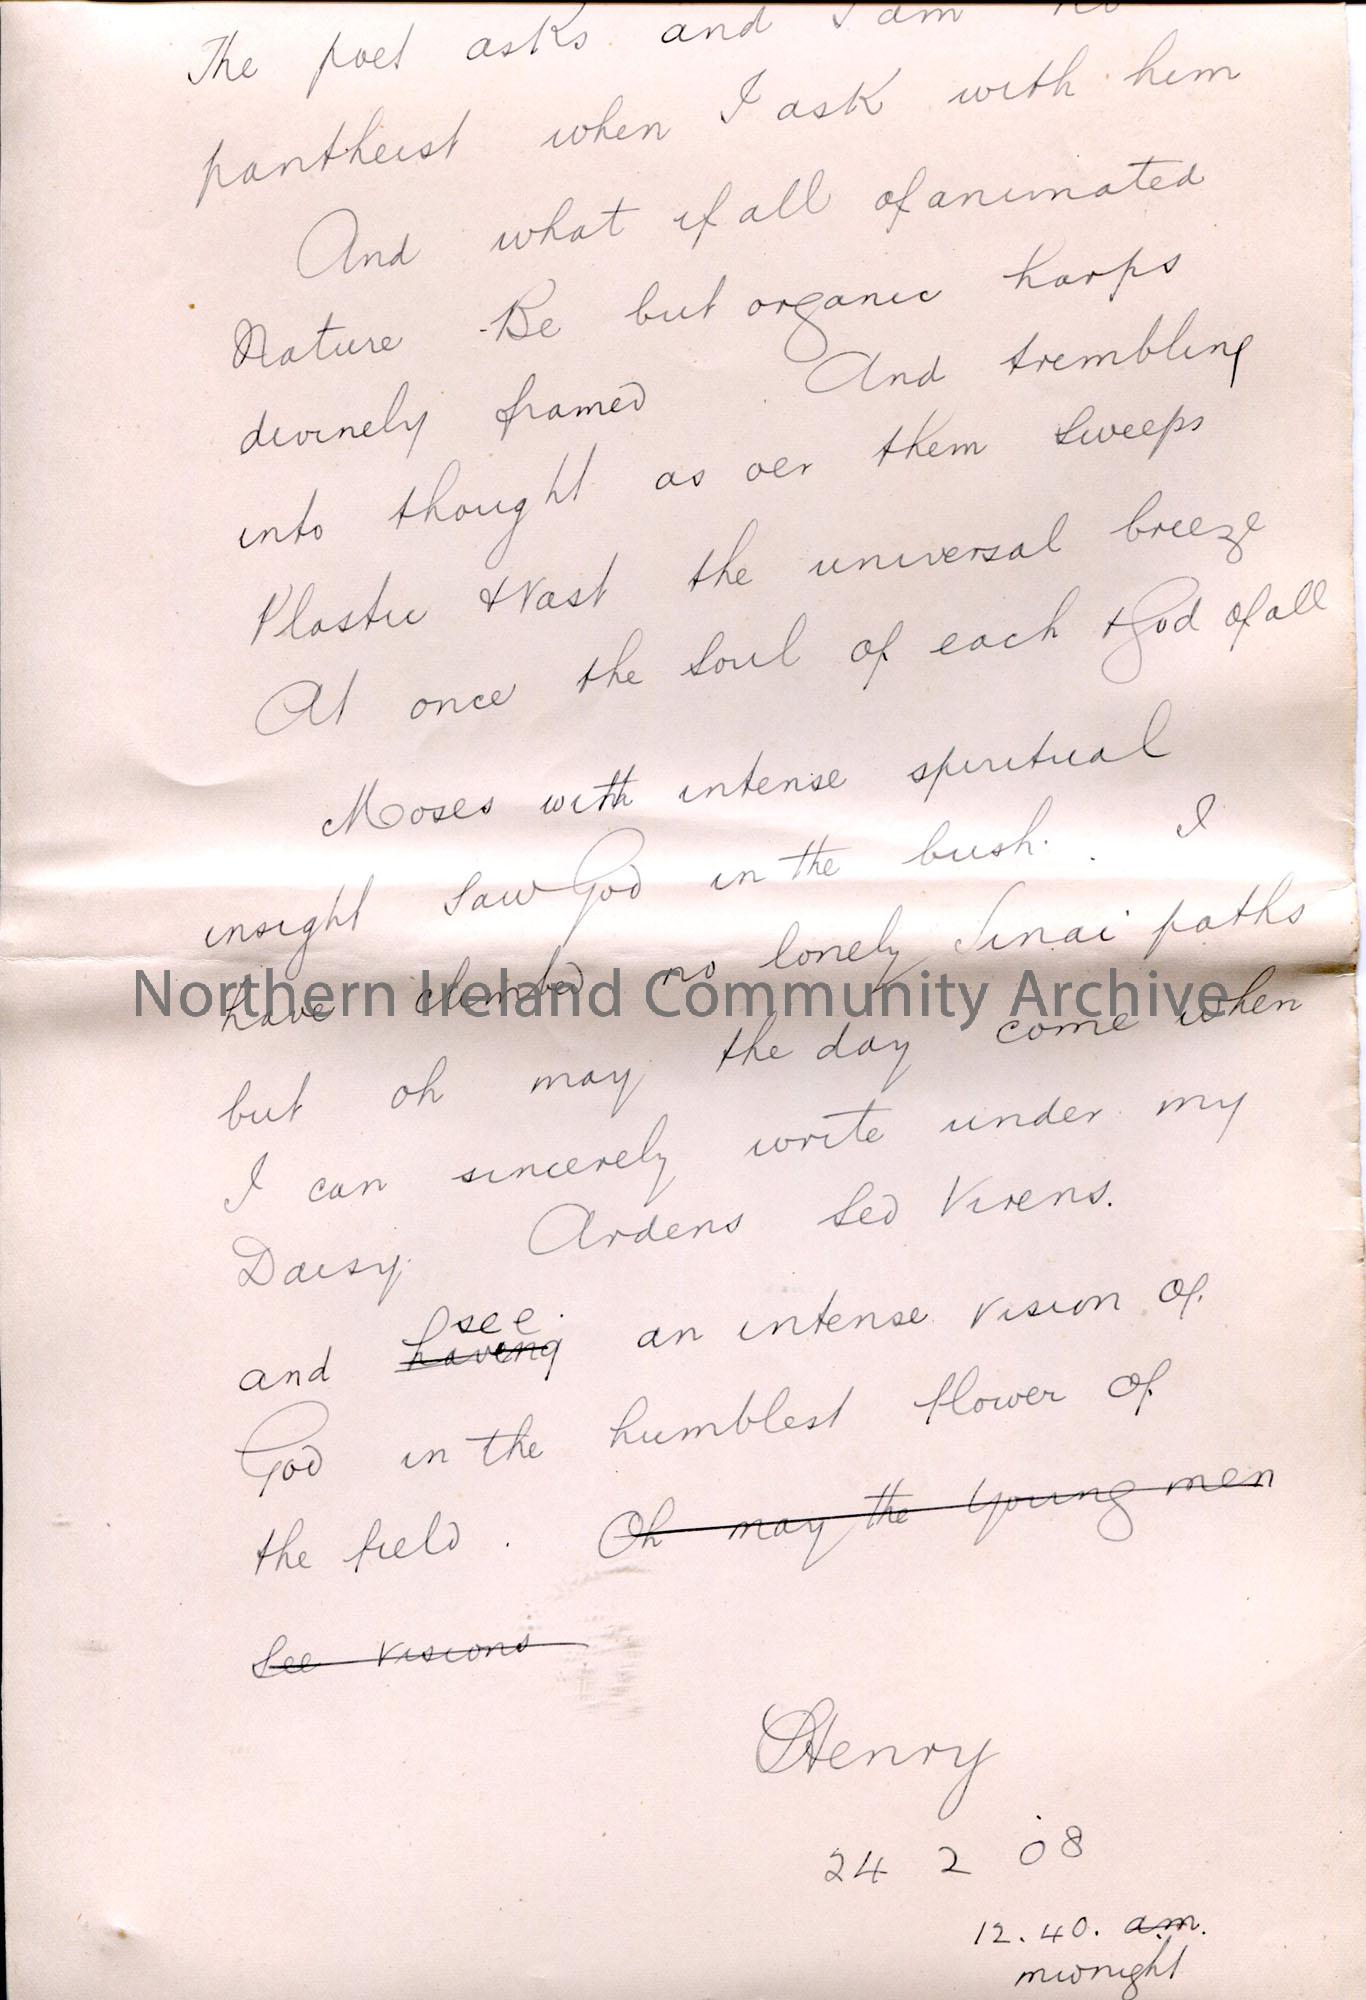 The poet asks and I am no
pantheist when I ask with him
And what if all of animated
Nature Be but organic harps
divinely framed And trembling
into thought as oer them sweeps
Plastic & Vast the universal breeze
At once the Soul of each & God of all
Moses with intense spiritual
insight saw God in the bush. I
have climbed no lonely Sinai paths
Northern Ireland Community Archive
but oh may the day come when
I can sincerely write under my
Daisy. Ardens Sed Virens.
see
and having an intense vision of
God in the humblest flower of
the field. Oh may the young men
See visions
SHenry
24 2 08
12.40. a.m.
midnight